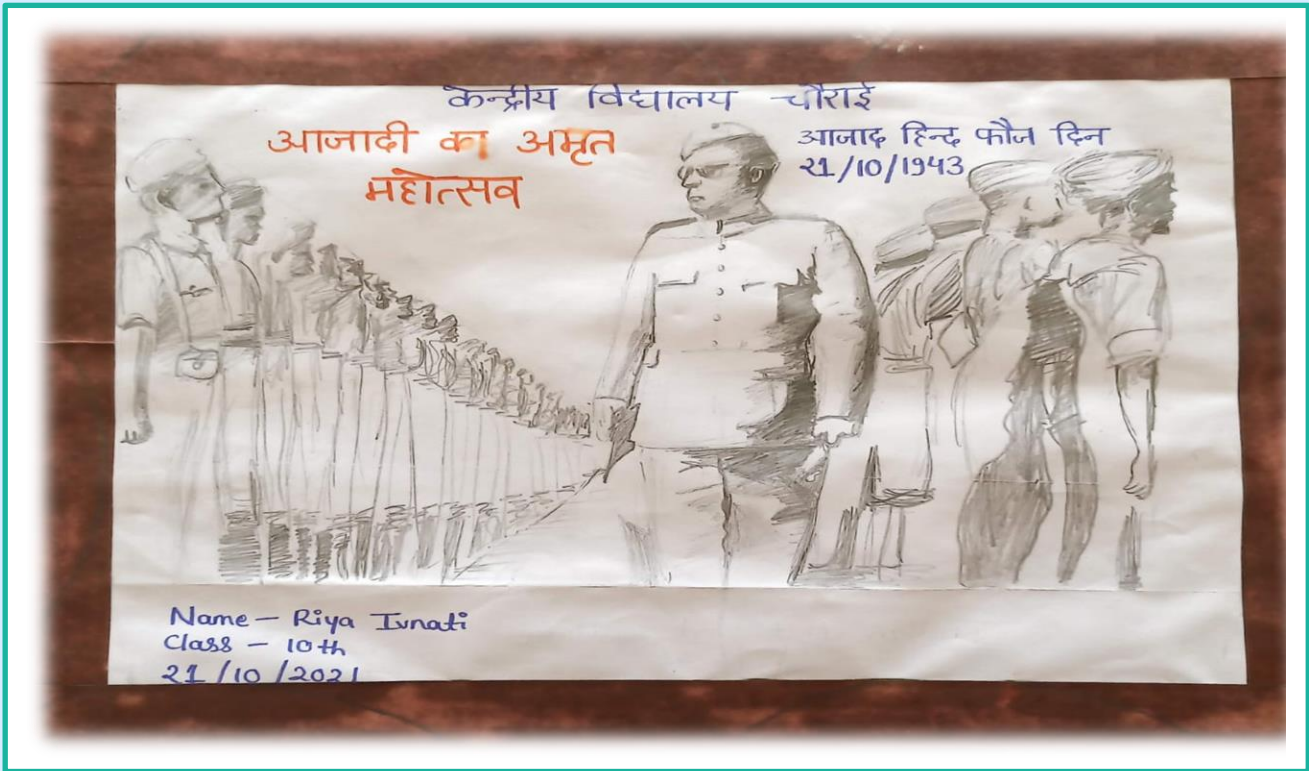 केन्द्रीय विद्यालय चौराई
आजादी का अमृत
महोत्सव
आजाद हिन्द फौज दिन
21/10/1943
Name – Riya Ivnati
Class – 10th
21/10/2021